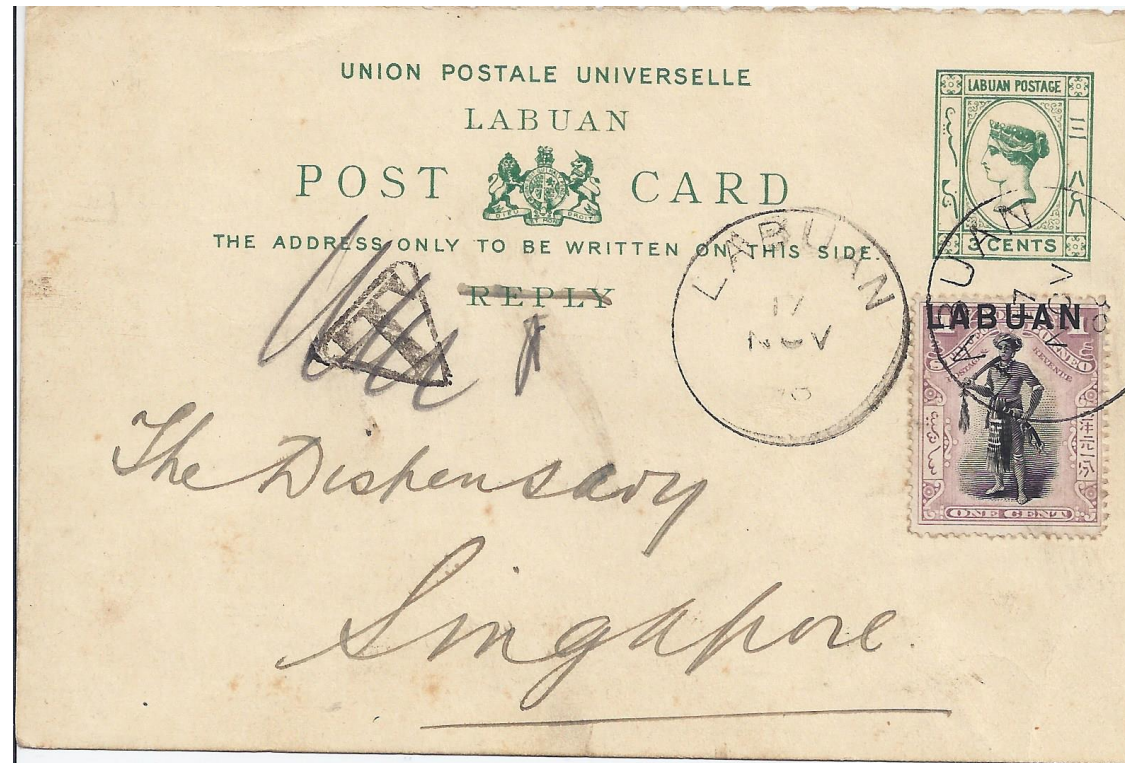 UNION POSTALE UNIVERSELLE
LABUAN
POST CARD
DIEU ET MON DROIT
THE ADDRESS ONLY TO BE WRITTEN ON THIS SIDE.
REPLY
LABUAN POSTAGE
三
八
3 CENTS
LABUAN
17
NOV
LABUAN
17
NOV
LABUAN
POSTAGE
REVENUE
洋元一分
ONE CENT
T
The Dispensary
Singapore.